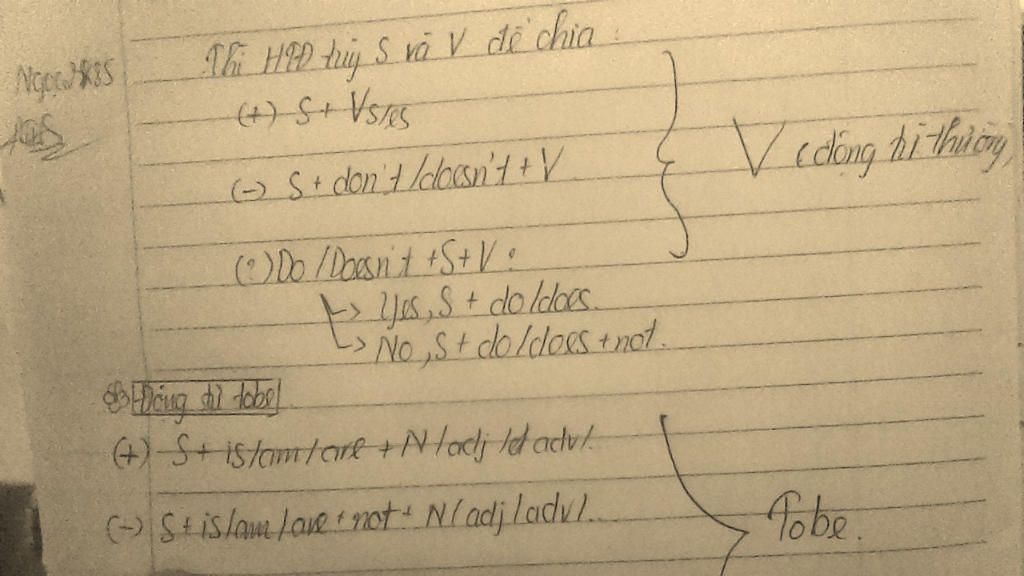 Thì HTĐ tùy S và V để chia :
(+) S + Vs/es
(-) S + don't/doesn't + V
V (động từ thường)
(?) Do/Doesn't + S + V ?
↳ Yes, S + do/does.
↳ No, S + do/does + not.
Động từ tobe
(+) S + is/am/are + N/adj / adv/.
(-) S + is/am/are + not + N/adj/adv/...
Tobe.